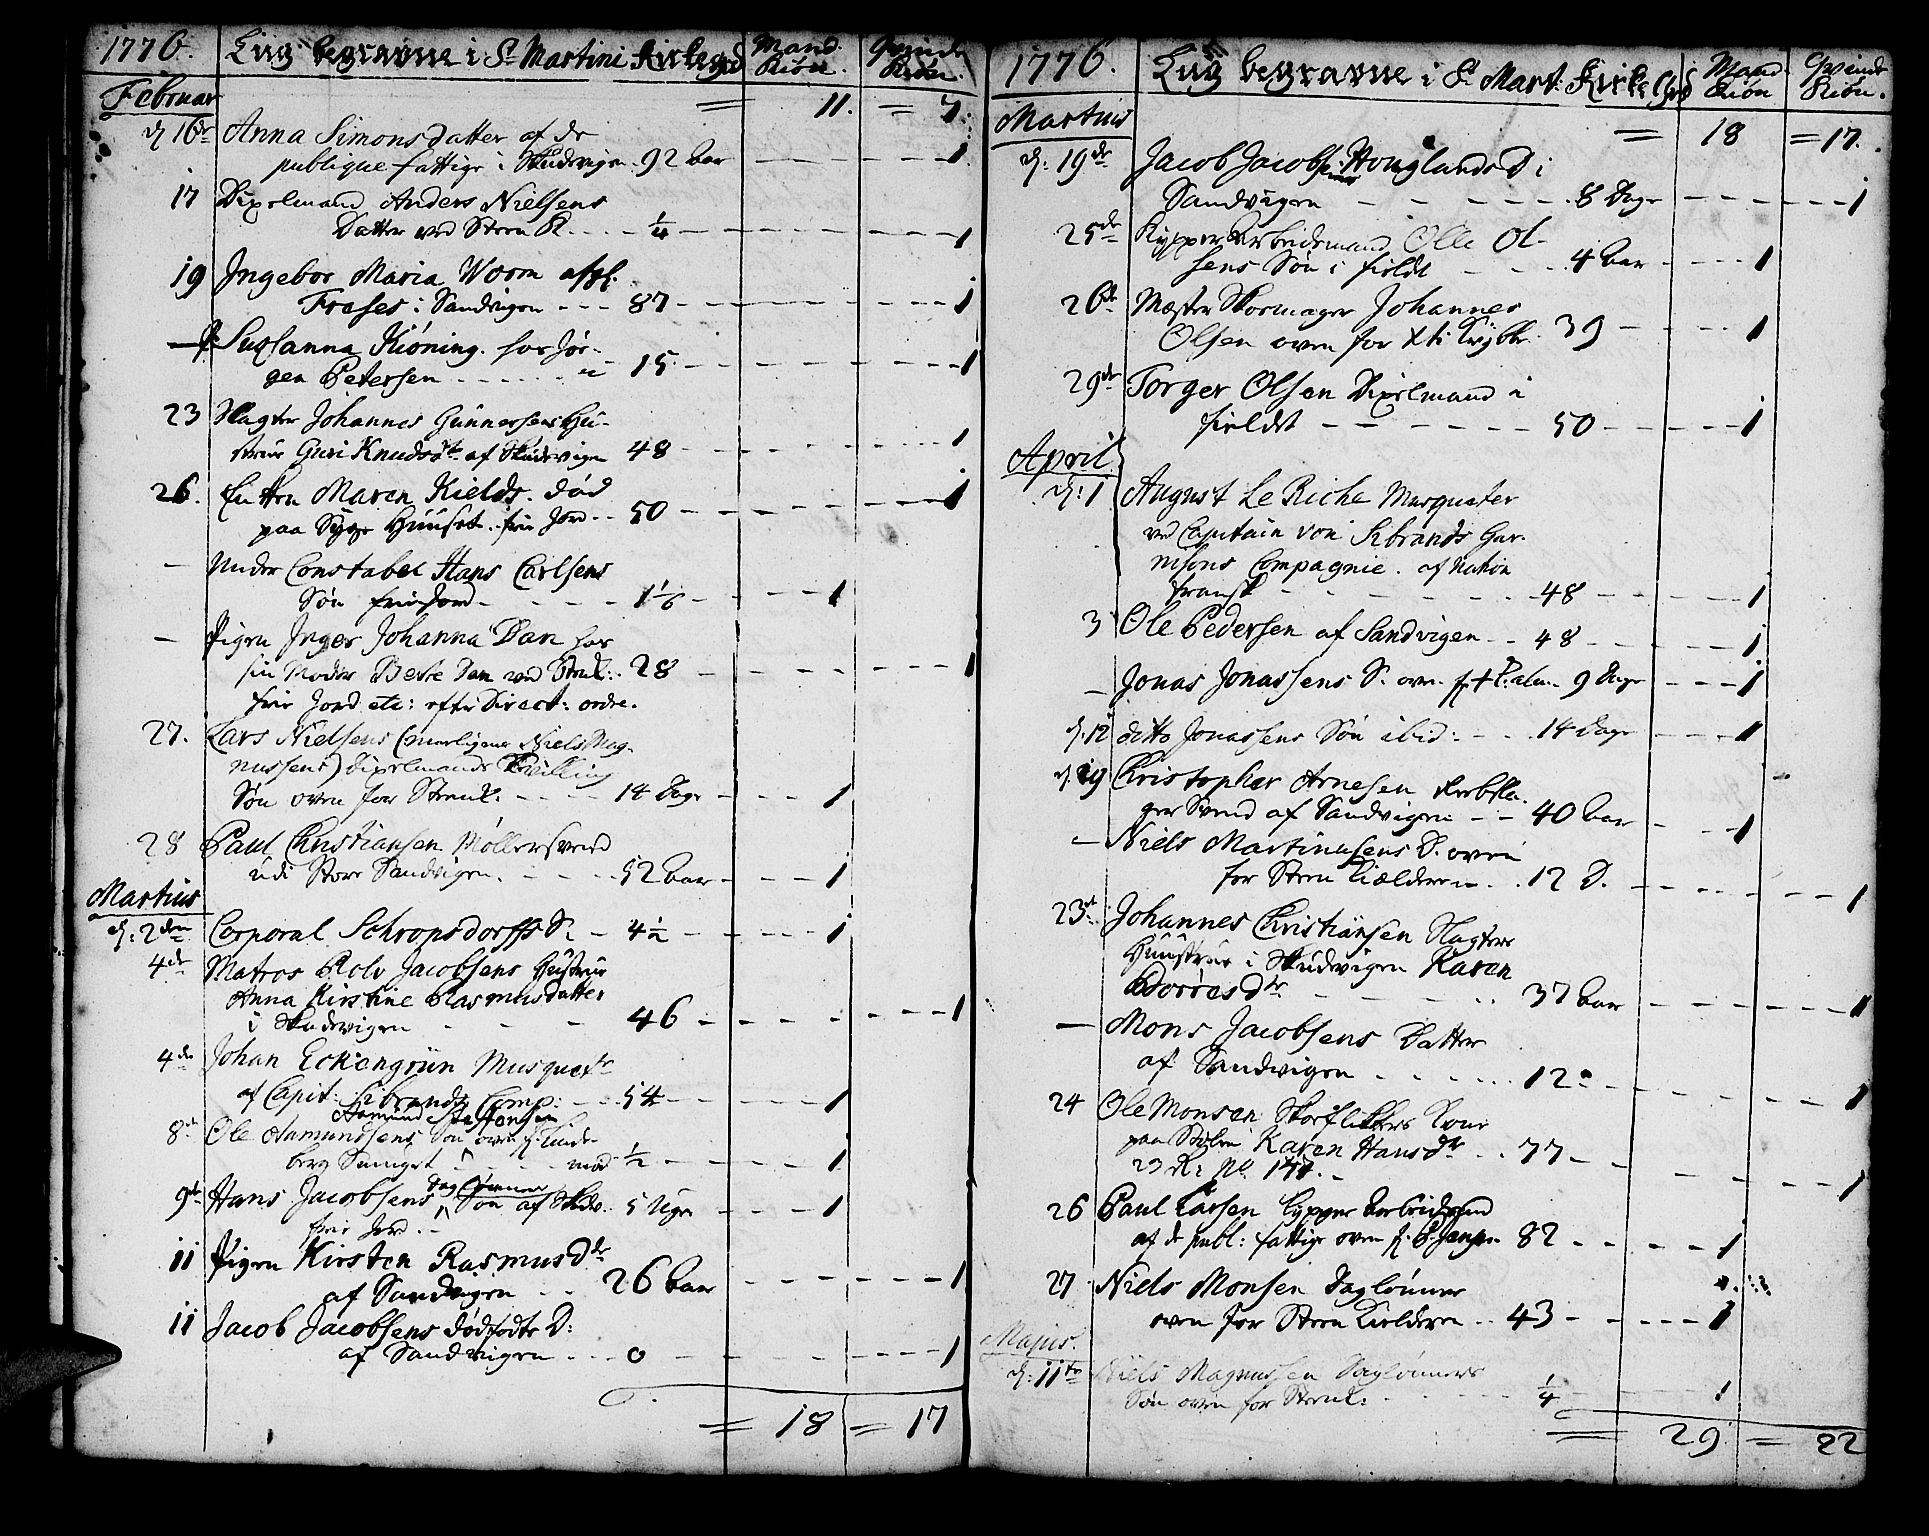 1776. Liig begravne i St Martini Kirkegd Mand Kiøn. Qvinde Kiøn.
Februar = 11. = 7.
d 16de Anna Simonsdatter af de
publique fattige i Skudevigen 92 aar 1
17 Dixelmand Anders Nielsens
Datter ved Steen K. 1/4 1
19 Ingebor Maria Worm
i Sandvigen 87 1
Susanna Kiøning. hos Jør-
gen Petersen 15 1
23 Slagter Johannes Gunnersens Hu-
strue Guri Knudsdtr af Skudevigen 48 1
26. Enken Maren Kields. død
paa Syge Huuset. frie Jord 50 1
- Under Constabel Hans Carlsens
Søn frie Jord 1 1/6 1
- Pigen Inger Johanna Dan hos
sin Moder Dan ved Steenk: 28 1
frie Jord etc: efter Direct: ordre.
27. Lars Nielsens (Niels Mag-
nussens) Dixelmands Tvilling
Søn oven for Steenk. 14 Dage 1
28 Paul Christiansen Møllersvend
udi Store Sandvigen. 52 aar 1
Martius
d: 2den Corporal Schropsdorffs S. 4 1/2 1
4de Matros Rolv Jacobsens Hustrue
Anna Kirstine Rasmusdatter
i Skudevigen 46 1
4de Johan Eckengrün Musquetr
af Capit: Sibrands Comp: 54 1
8de Ole Aamundsens Søn oven f. Linde-
berg Smuget 1/2 1
9de Hans Jacobsens Daglønner Søn af Skudv. 5 Uger 1
frie Jord
11 Pigen Kirsten Rasmusdtr
af Sandvigen 26 aar 1
11 Jacob Jacobsens dødfødte D:
af Sandvigen 0 1
= 18 = 17
1776. Liig begravne i St Mart: Kirke Gd Mand Kiøn Qvinde Kiøn.
Martius = 18 = 17.
d: 19de Jacob Jacobsens Houglands D i
Sandvigen 8 Dage 1
25de Kypper Arbeidsmand Olle Ol-
sens Søn i fieldt 4 aar 1
26de Mester Skoemager Johannes
Olsen oven for 39 1
29de Torger Olsen Dixelmand i
fieldet 50 1
April
d: 1 August Le Riche Musqueter
ved Capitain von Sibrands Gar-
nisons Compagnie. af Nation
fransk 48 1
3 Ole Pedersen af Sandvigen 48 1
- Jonas Jonassens S. oven f. 9 Dage 1
d. 12 ditto Jonassens Søn ibid: 14 Dage 1
d 19 Christopher Arnesen Reebsla-
ger Svend af Sandvigen 40 aar 1
- Niels Martinusens D. oven
for Steen Kielderen 12 D. 1
23de Johannes Christiansen Slagters
Huustrue i Skudvigen Karen
Borresdtr 37 aar 1
- Mons Jacobsens Datter
af Sandvigen 12 1
24 Ole Monsen Skoeflikkers Kone
paa Stølen Karen Hansdtr 77 1
23 R: No 147.
26 Paul Larsen Kypper Arbeidsmd
af de publ: fattige oven f. 82 1
27 Niels Monsen Daglønner
oven for Steen Kielderen 43 1
Majus.
d: 11te Niels Magnussen Daglønners
Søn oven for Steenk: 1/4 1
= 29 = 22